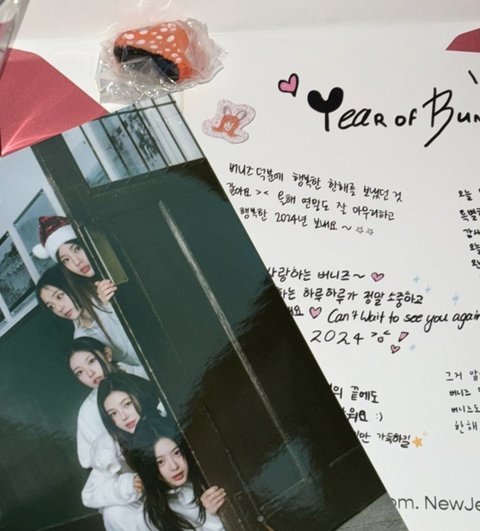 YEAR OF BUN
버니즈 덕분에 행복한 한해를 보냈던 것
같아요 >< 올해 연말도 잘 마무리하고
행복한 2024년 보내요 ~ ☆☆
사랑하는 버니즈~ ♡
하는 하루하루가 정말 소중하고
해요 ♡ Can't wait to see you again
2024
의 끝에도
워요 :)
만 가득하길 ⭐
오늘
특별
감사
오늘
그거 알
버니즈
버니즈도
한해
om. NewJe